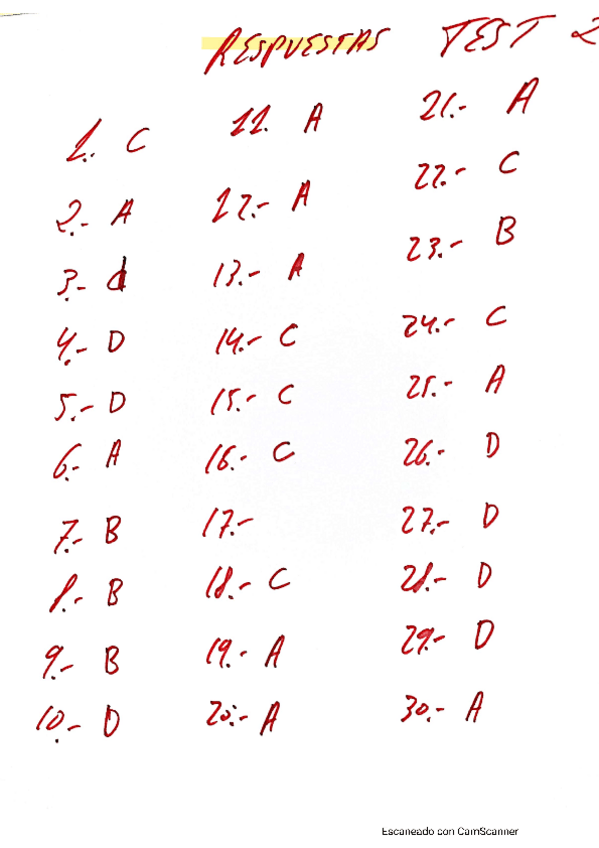 RESPUESTAS TEST 2
1.- C
2.- A
3.- d
4.- D
5.- D
6.- A
7.- B
8.- B
9.- B
10.- D
11. A
12.- A
13.- A
14.- C
15.- C
16.- C
17.-
18.- C
19.- A
20.- A
21.- A
22.- C
23.- B
24.- C
25.- A
26.- D
27.- D
28.- D
29.- D
30.- A
Escaneado con CamScanner